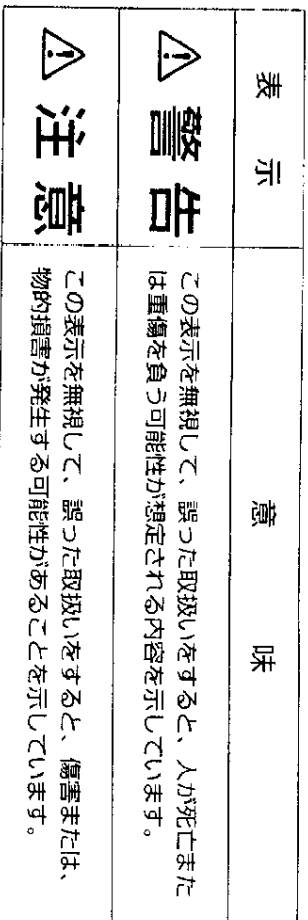 表示 意味
⚠警告
この表示を無視して、誤った取扱いをすると、人が死亡また
は重傷を負う可能性が想定される内容を示しています。
⚠注意
この表示を無視して、誤った取扱いをすると、傷害または、
物的損害が発生する可能性があることを示しています。